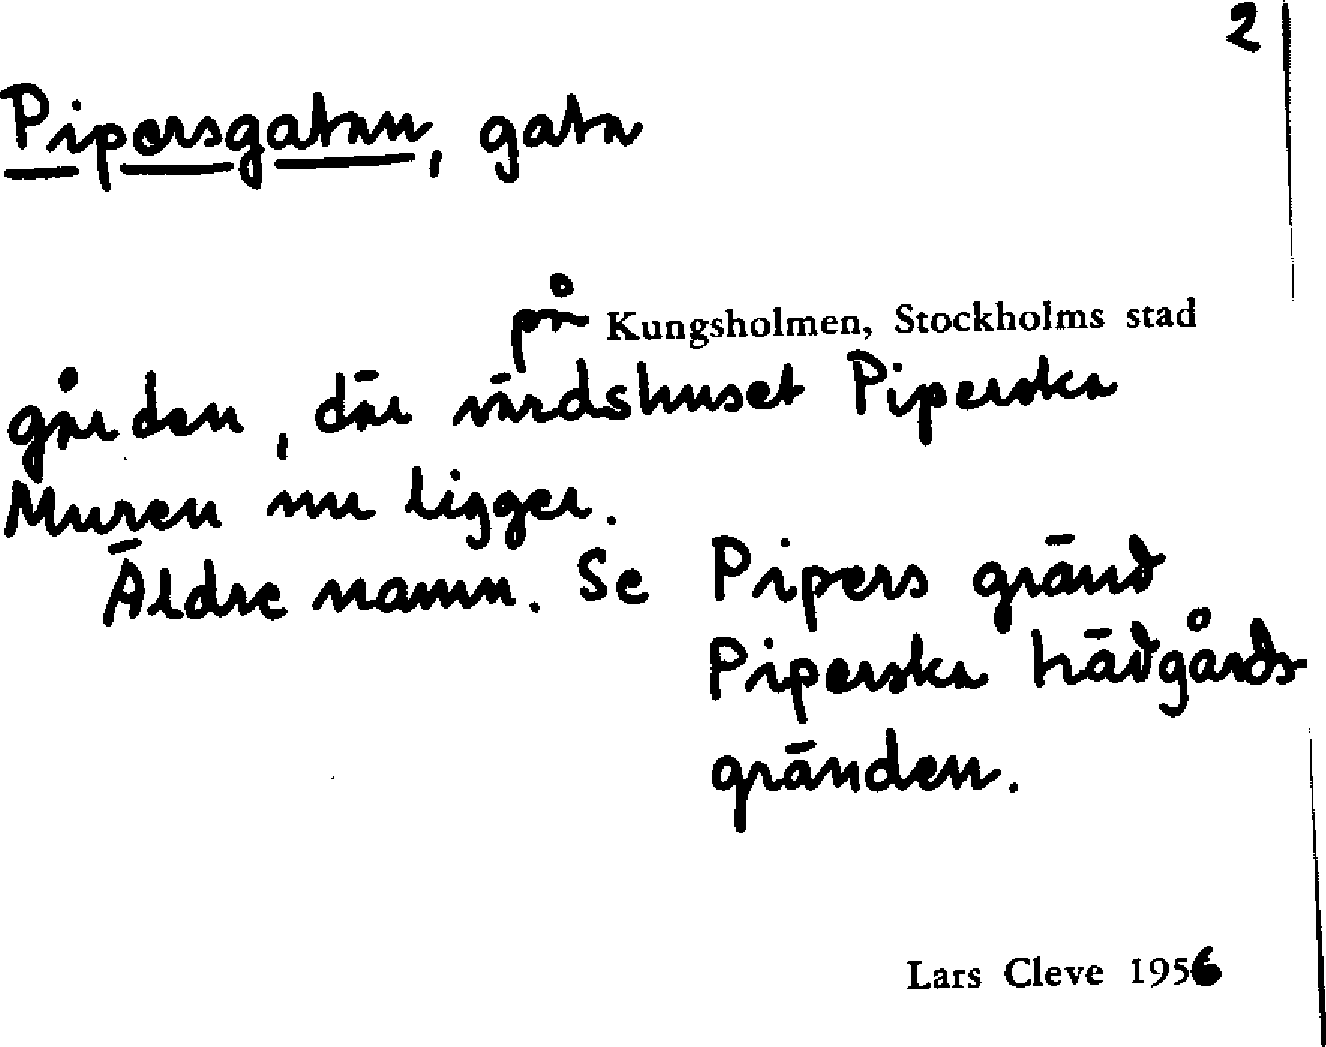 2
Pipersgatan, gata
på Kungsholmen, Stockholms stad
gården, där värdshuset Piperska
Muren nu ligger.
Äldre namn. Se Pipers gränd
Piperska trädgårds-
gränden.
Lars Cleve 1956